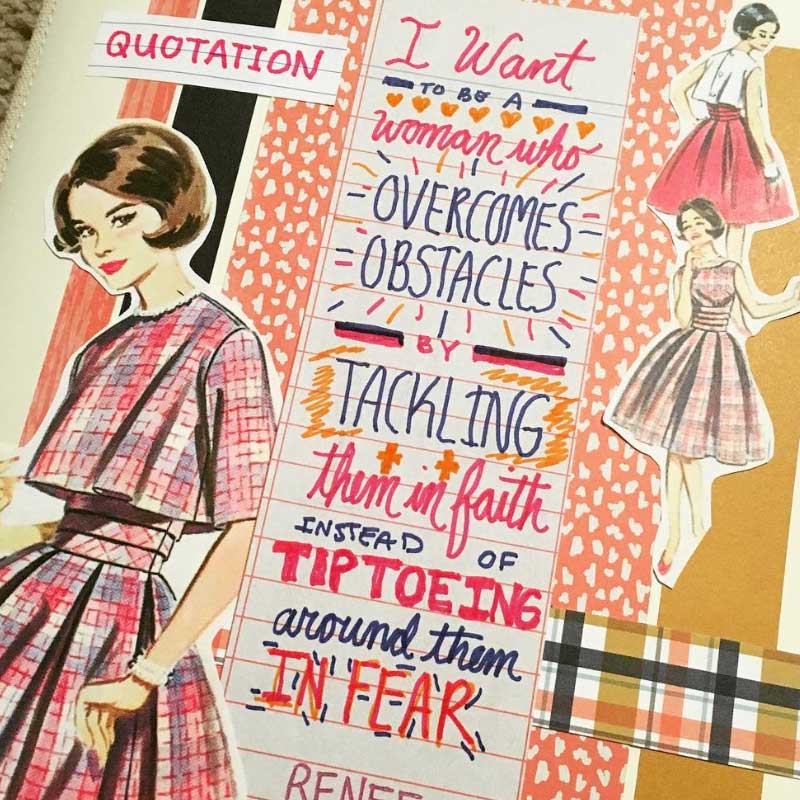 QUOTATION
I Want
TO BE A
woman who
OVERCOMES
OBSTACLES
BY
TACKLING
them in faith
INSTEAD OF
TIPTOEING
around them
IN FEAR
RENEE